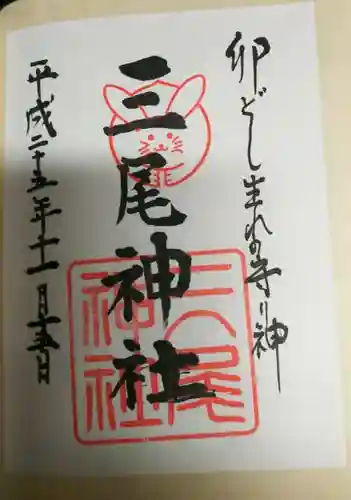 卯どし生れの守り神
三尾神社
平成二十五年十一月十五日
三尾神社